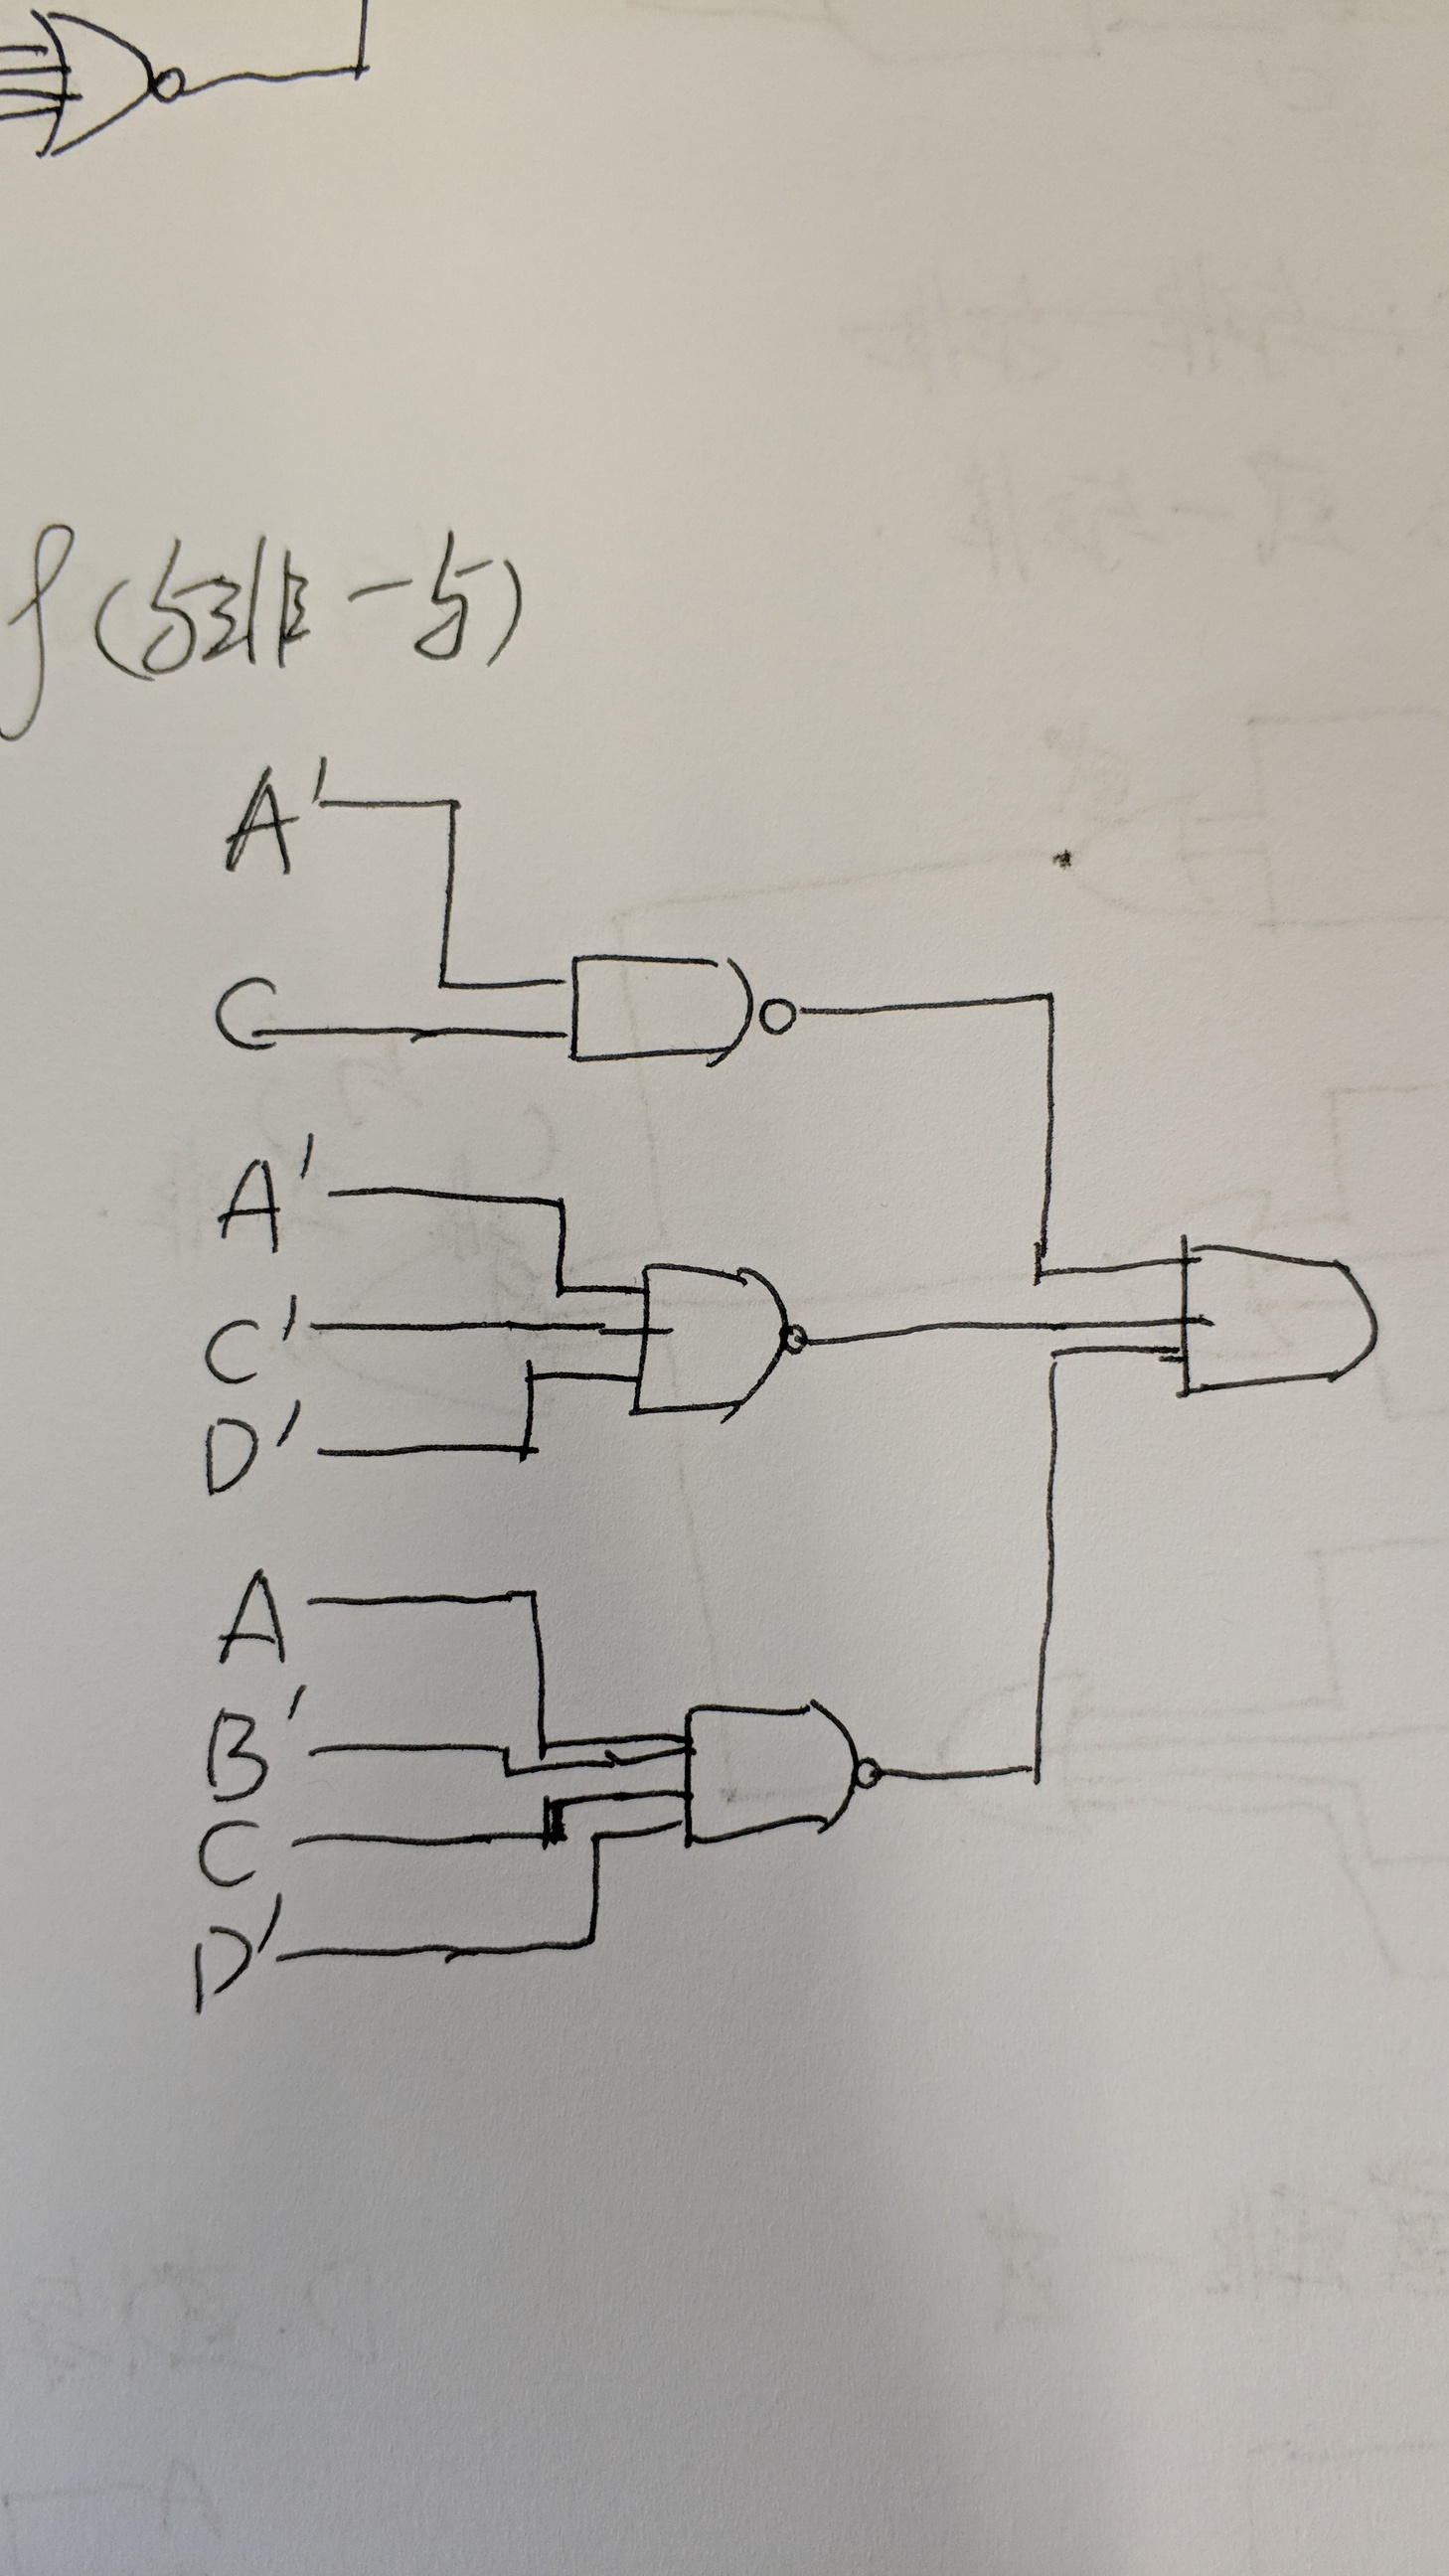 f(与非-与)
A'
C
A'
C'
D'
A
B'
C
D'